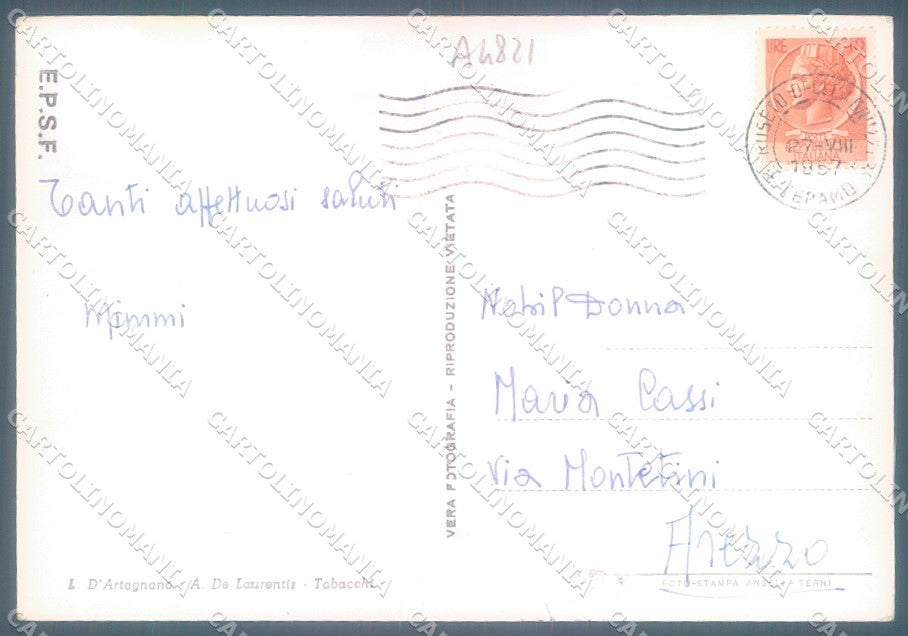 A4821
E.P.S.F.
LIRE
ITALIANA
1957
TERAMO
Tanti affettuosi saluti
Mimmi
VERA FOTOGRAFIA - RIPRODUZIONE VIETATA
Nobil Donna
Maria Cassi
Via Montetini
Arezzo
L. D'Artagnano - A. De Laurentis - Tabacchi
FOTO-STAMPA ANGELI - TERNI
CARTOLINOMANIA